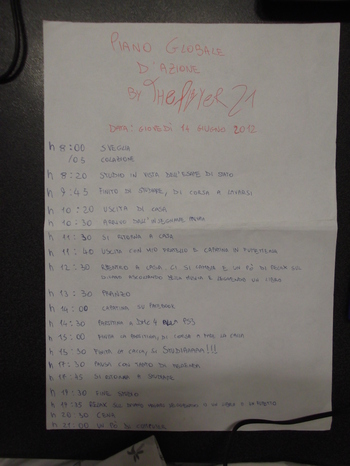 PIANO GLOBALE
D'AZIONE
BY
DATA: GIOVEDÌ 14 GIUGNO 2012
h 8:00 SVEGLIA
/05 COLAZIONE
h 8:20 STUDIO IN VISTA DELL'ESAME DI STATO
h 9:45 FINITO DI STUDIARE, DI CORSA A LAVARSI
h 10:20 USCITA DI CASA
h 10:30 ARRIVO DALL'
h 11:30 SI RITORNA A CASA
h 11:40 USCITA CON MIO FRATELLO E CAPATINA IN FUMETTERIA
h 12:30 RIENTRO A CASA, CI SI CAMBIA E UN PÒ DI RELAX SUL
DIVANO ASCOLTANDO DELLA MUSICA E LEGGENDO UN LIBRO
h 13:30 PRANZO
h 14:00 CAPATINA SU
h 14:30 PARTITINA A PS3
h 15:00 FINITA LA PARTITINA, DI CORSA A FARE LA CACCA
h 15:30 FINITA LA CACCA, SI STUDIAAAAA!!!
h 17:30 PAUSA CON TANTO DI MERENDA
h 17:45 SI RITORNA A STUDIARE
h 19:30 FINE STUDIO
h 19:35 RELAX SUL DIVANO
h 20:30 CENA
h 21:00 UN PÒ DI COMPUTER